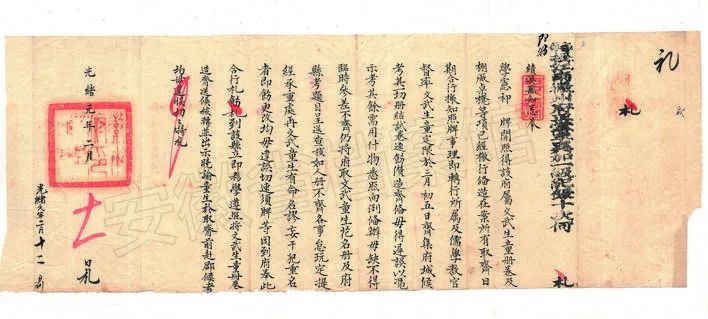 札
札
績溪縣知悉奉
學憲祁 牌開照得該府屬文武生童冊卷及
棚廠桌櫈等項已經檄行備造在案所有取齊日
期合行知牌事理即轉行所屬及儒學教官
督率文武生童定限於三月初五日齊集府城候
考其一切冊結試卷速飭備造齊俻毋得遲誤以憑
示考其餘需用什物悉照向例俻辦毋缺不得
臨時參差不齊仍將府取文武童生花名冊及府
縣考題目呈送查核如人冊不齊各事怠玩定提
經承重處再文武童生有命名謬妄干犯重名
者即飭更改均毋違誤切速須牌等因到府奉此
合行札飭札到該縣立即移學遵照將文武生童冊卷
造齊送核轉並出示曉諭童生於取齊前赴郡候考
均毋違誤切切特札
光緒元年二月
十一
日札
光緒元年二月十二
札